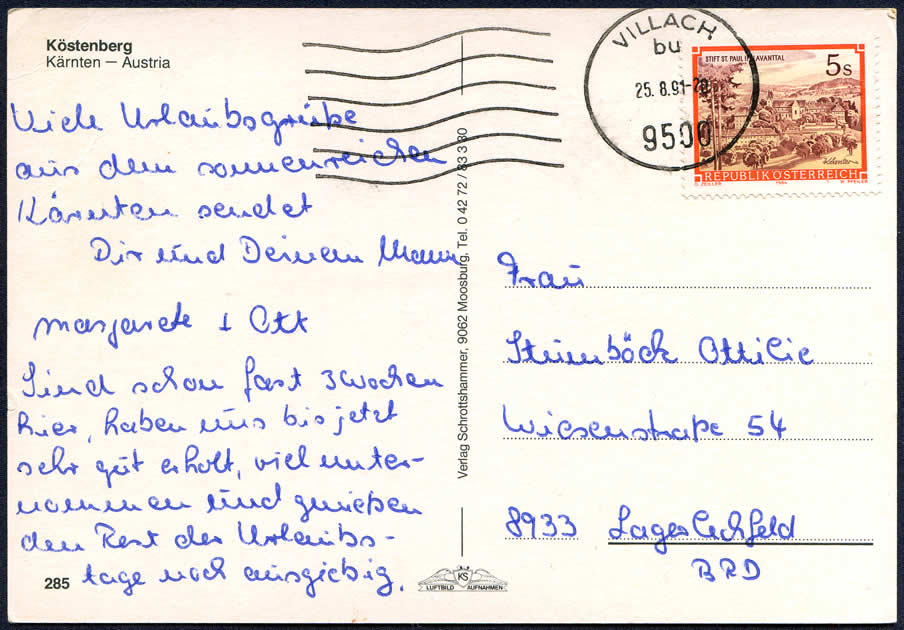 Köstenberg
Kärnten — Austria
Viele Urlaubsgrüße
aus dem sonnenreichen
Kärnten sendet
Dir und Deinem Mann
Margarete + Ott
Sind schon fast 3 Wochen
hier, haben uns bis jetzt
sehr gut erholt, viel unter-
nommen und genießen
den Rest der Urlaubs-
tage noch ausgiebig.
285
Verlag Schrottshammer, 9062 Moosburg, Tel. 0 42 72 / 83 3 80
KS
LUFTBILD AUFNAHMEN
VILLACH
bu
25. 8. 91-20
9500
STIFT ST. PAUL IM LAVANTTAL
5s
REPUBLIK ÖSTERREICH
O. ZEILLER 1984 W. PFEILER
Frau
Steinböck Ottilie
Wiesenstraße 54
8933 Lagerlechfeld
BRD